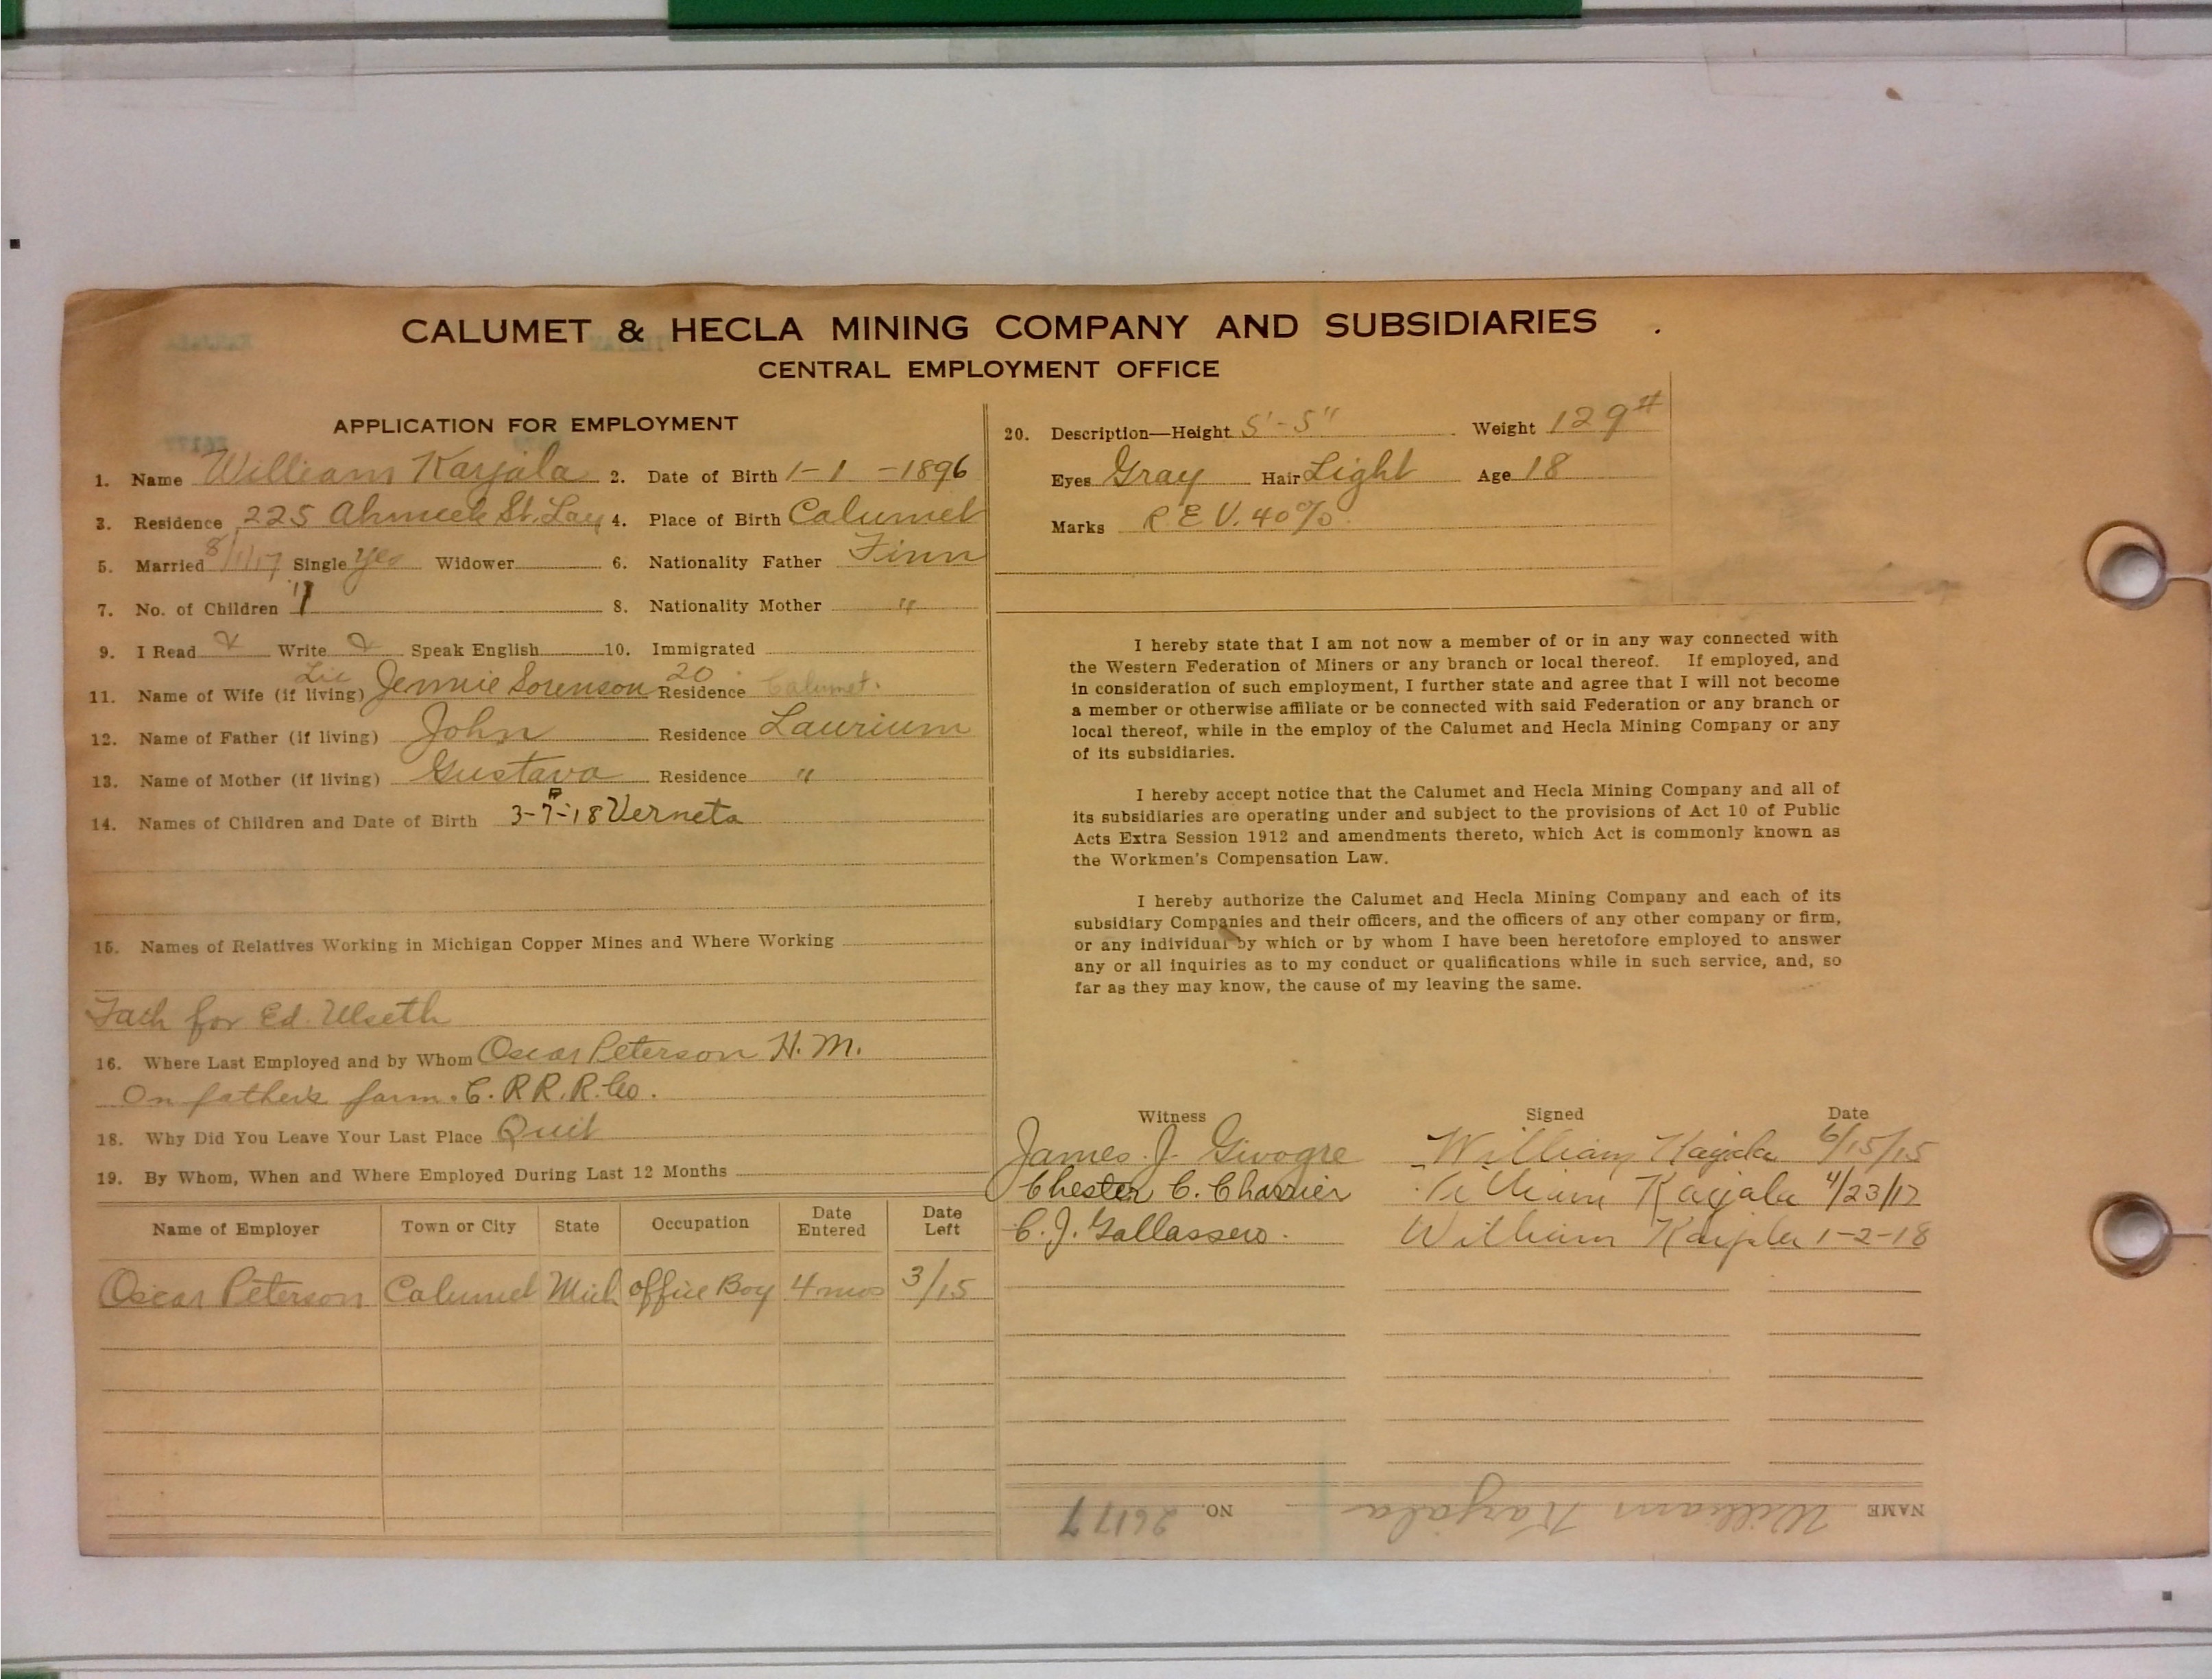 CALUMET & HECLA MINING COMPANY AND SUBSIDIARIES
CENTRAL EMPLOYMENT OFFICE
APPLICATION FOR EMPLOYMENT
1. Name William Karjala 2. Date of Birth 1-1-1896
3. Residence 225 Ahmeek St. Lau 4. Place of Birth Calumet
5. Married 8/1/17 Single Yes Widower 6. Nationality Father Finn
7. No. of Children 1 8. Nationality Mother "
9. I Read & Write & Speak English 10. Immigrated
Lic 20
11. Name of Wife (if living) Jennie Sorenson Residence Calumet.
12. Name of Father (if living) John Residence Laurium
13. Name of Mother (if living) Gustava Residence "
14. Names of Children and Date of Birth 3-7-18 Verneta
15. Names of Relatives Working in Michigan Copper Mines and Where Working
Fath for Ed. Ulseth
16. Where Last Employed and by Whom Oscar Peterson H. M.
On father's farm. C. R R. R. Co.
18. Why Did You Leave Your Last Place Quit
19. By Whom, When and Where Employed During Last 12 Months
Name of Employer Town or City State Occupation Date Entered Date Left
Oscar Peterson Calumet Mich office Boy 4 mos 3/15
20. Description—Height 5'-5" Weight 129#
Eyes Gray Hair Light Age 18
Marks R E V. 40%.
I hereby state that I am not now a member of or in any way connected with
the Western Federation of Miners or any branch or local thereof. If employed, and
in consideration of such employment, I further state and agree that I will not become
a member or otherwise affiliate or be connected with said Federation or any branch or
local thereof, while in the employ of the Calumet and Hecla Mining Company or any
of its subsidiaries.
I hereby accept notice that the Calumet and Hecla Mining Company and all of
its subsidiaries are operating under and subject to the provisions of Act 10 of Public
Acts Extra Session 1912 and amendments thereto, which Act is commonly known as
the Workmen's Compensation Law.
I hereby authorize the Calumet and Hecla Mining Company and each of its
subsidiary Companies and their officers, and the officers of any other company or firm,
or any individual by which or by whom I have been heretofore employed to answer
any or all inquiries as to my conduct or qualifications while in such service, and, so
far as they may know, the cause of my leaving the same.
Witness Signed Date
James. J. Givogre William Karjala 6/15/15
Chester C. Charrier William Karjala 4/23/17
C. J. Gallassero. William Karjala 1-2-18
NAME William Karjala NO. 26177